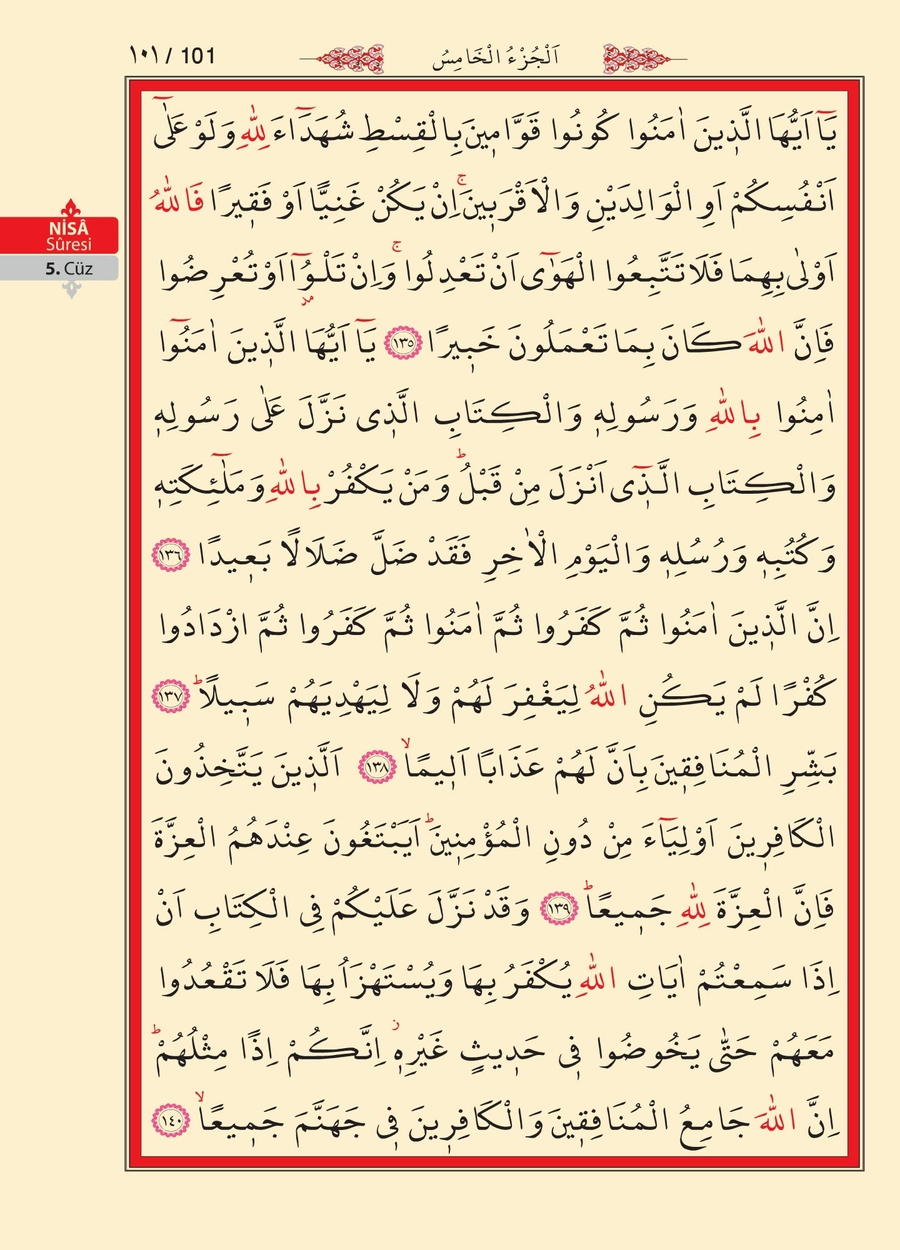 ١٠١ / 101
اَلْجُزْءُ الْخَامِسُ
NİSÂ
Sûresi
5. Cüz
يَٓا اَيُّهَا الَّذ۪ينَ اٰمَنُوا كُونُوا قَوَّام۪ينَ بِالْقِسْطِ شُهَدَٓاءَ لِلّٰهِ وَلَوْ عَلٰٓى
اَنْفُسِكُمْ اَوِ الْوَالِدَيْنِ وَالْاَقْرَب۪ينَۚ اِنْ يَكُنْ غَنِيًّا اَوْ فَق۪يرًا فَاللّٰهُ
اَوْلٰى بِهِمَا فَلَا تَتَّبِعُوا الْهَوٰٓى اَنْ تَعْدِلُواۚ وَاِنْ تَلْوُٓ۫ا اَوْ تُعْرِضُوا
فَاِنَّ اللّٰهَ كَانَ بِمَا تَعْمَلُونَ خَب۪يرًا ﴿١٣٥﴾ يَٓا اَيُّهَا الَّذ۪ينَ اٰمَنُٓوا
اٰمِنُوا بِاللّٰهِ وَرَسُولِه۪ وَالْكِتَابِ الَّذ۪ى نَزَّلَ عَلٰى رَسُولِه۪
وَالْكِتَابِ الَّذ۪ٓى اَنْزَلَ مِنْ قَبْلُۜ وَمَنْ يَكْفُرْ بِاللّٰهِ وَمَلٰٓئِكَتِه۪
وَكُتُبِه۪ وَرُسُلِه۪ وَالْيَوْمِ الْاٰخِرِ فَقَدْ ضَلَّ ضَلَالًا بَع۪يدًا ﴿١٣٦﴾
اِنَّ الَّذ۪ينَ اٰمَنُوا ثُمَّ كَفَرُوا ثُمَّ اٰمَنُوا ثُمَّ كَفَرُوا ثُمَّ ازْدَادُوا
كُفْرًا لَمْ يَكُنِ اللّٰهُ لِيَغْفِرَ لَهُمْ وَلَا لِيَهْدِيَهُمْ سَب۪يلًاۜ ﴿١٣٧﴾
بَشِّرِ الْمُنَافِق۪ينَ بِاَنَّ لَهُمْ عَذَابًا اَل۪يمًاۙ ﴿١٣٨﴾ اَلَّذ۪ينَ يَتَّخِذُونَ
الْكَافِر۪ينَ اَوْلِيَٓاءَ مِنْ دُونِ الْمُؤْمِن۪ينَۜ اَيَبْتَغُونَ عِنْدَهُمُ الْعِزَّةَ
فَاِنَّ الْعِزَّةَ لِلّٰهِ جَم۪يعًاۜ ﴿١٣٩﴾ وَقَدْ نَزَّلَ عَلَيْكُمْ فِى الْكِتَابِ اَنْ
اِذَا سَمِعْتُمْ اٰيَاتِ اللّٰهِ يُكْفَرُ بِهَا وَيُسْتَهْزَاُ بِهَا فَلَا تَقْعُدُوا
مَعَهُمْ حَتّٰى يَخُوضُوا ف۪ى حَد۪يثٍ غَيْرِه۪ۘ اِنَّكُمْ اِذًا مِثْلُهُمْۜ
اِنَّ اللّٰهَ جَامِعُ الْمُنَافِق۪ينَ وَالْكَافِر۪ينَ ف۪ى جَهَنَّمَ جَم۪يعًاۙ ﴿١٤٠﴾